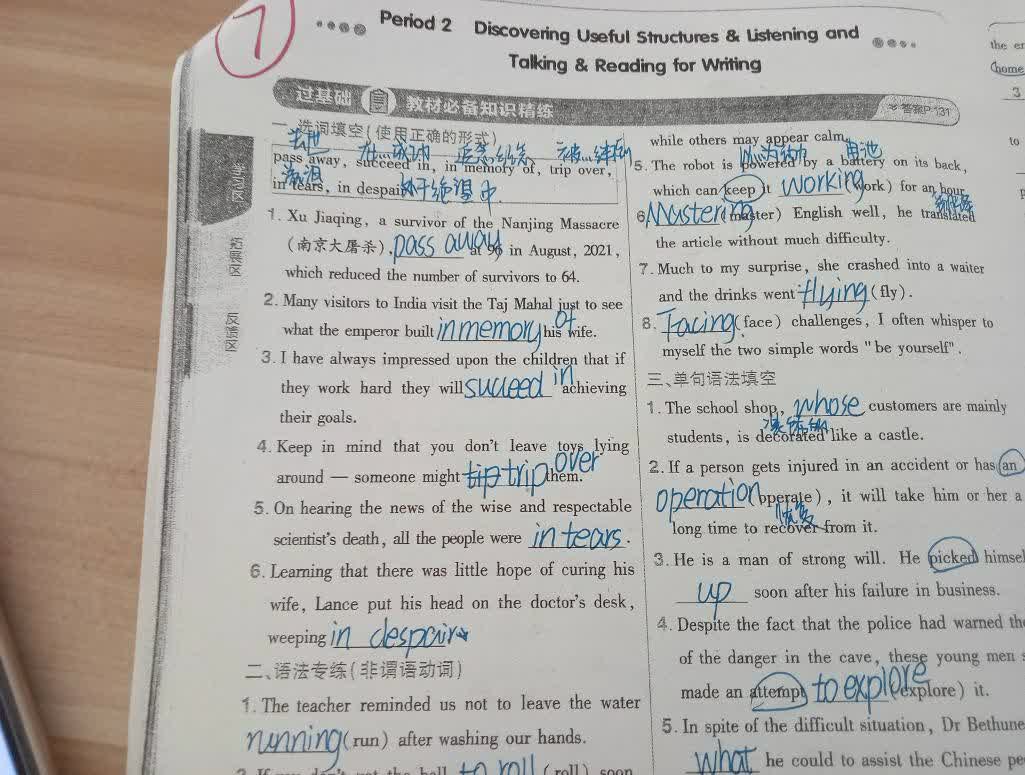 7
Period 2 Discovering Useful Structures & Listening and
Talking & Reading for Writing
过基础 教材必备知识精练
答案P·131
一、选词填空(使用正确的形式)
去世 在…成功 被…绊倒
pass away, succeed in, in memory of, trip over,
in tears, in despair 处于绝望中
1. Xu Jiaqing, a survivor of the Nanjing Massacre
(南京大屠杀), pass away at 96 in August, 2021,
which reduced the number of survivors to 64.
2. Many visitors to India visit the Taj Mahal just to see
what the emperor built in memory of his wife.
3. I have always impressed upon the children that if
they work hard they will succeed in achieving
their goals.
4. Keep in mind that you don't leave toys lying
around — someone might tip trip over them.
5. On hearing the news of the wise and respectable
scientist's death, all the people were in tears.
6. Learning that there was little hope of curing his
wife, Lance put his head on the doctor's desk,
weeping in despair.
二、语法专练(非谓语动词)
1. The teacher reminded us not to leave the water
running (run) after washing our hands.
to roll (roll) soon
while others may appear calm.
电池
5. The robot is powered by a battery on its back,
which can keep it working (work) for an hour.
6. Mastering (master) English well, he translated
the article without much difficulty.
7. Much to my surprise, she crashed into a waiter
and the drinks went flying (fly).
8. Facing (face) challenges, I often whisper to
myself the two simple words "be yourself".
三、单句语法填空
1. The school shop, whose customers are mainly
students, is decorated like a castle.
2. If a person gets injured in an accident or has an
operation (operate), it will take him or her a
恢复
long time to recover from it.
3. He is a man of strong will. He picked himsel
up soon after his failure in business.
4. Despite the fact that the police had warned the
of the danger in the cave, these young men
made an attempt to explore (explore) it.
5. In spite of the difficult situation, Dr Bethune
what he could to assist the Chinese pe
the er
home
3
to
拓展区